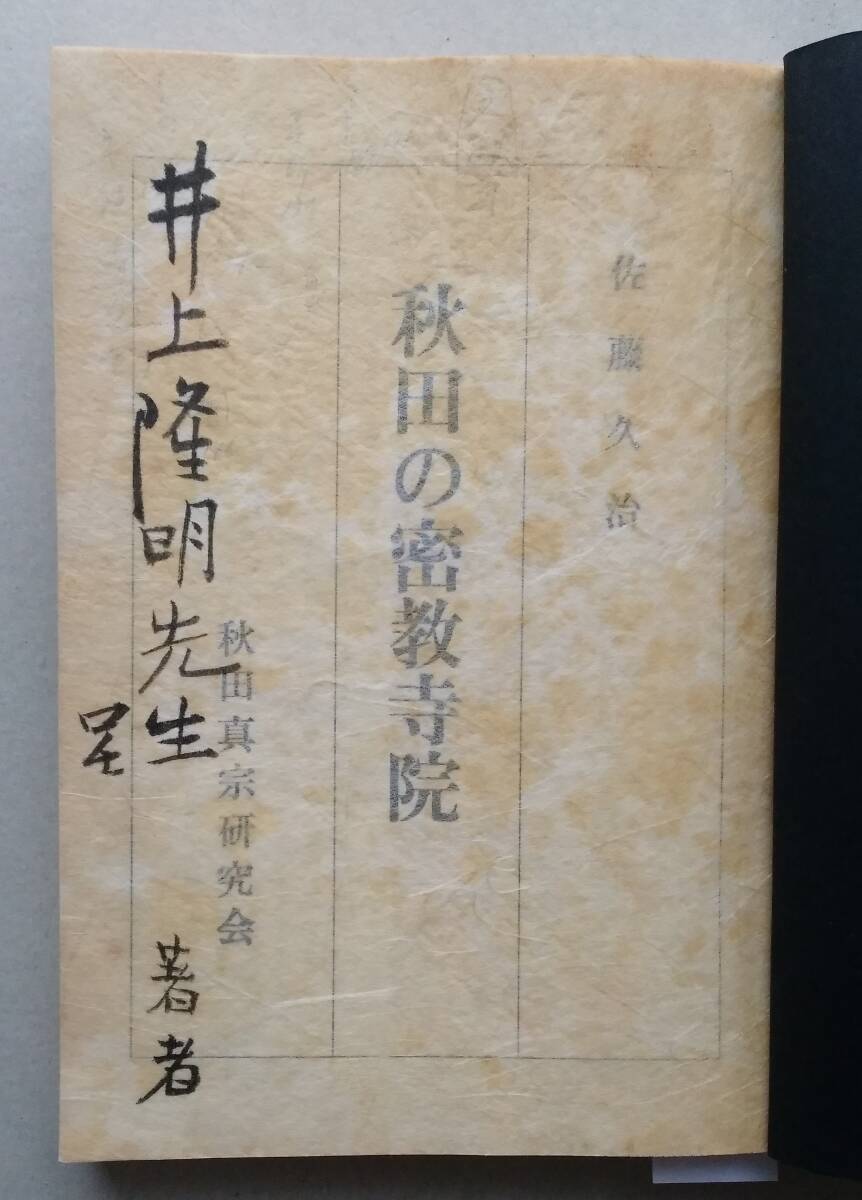 佐藤久治
秋田の密教寺院
秋田真宗研究会
井上隆明先生
呈
著者